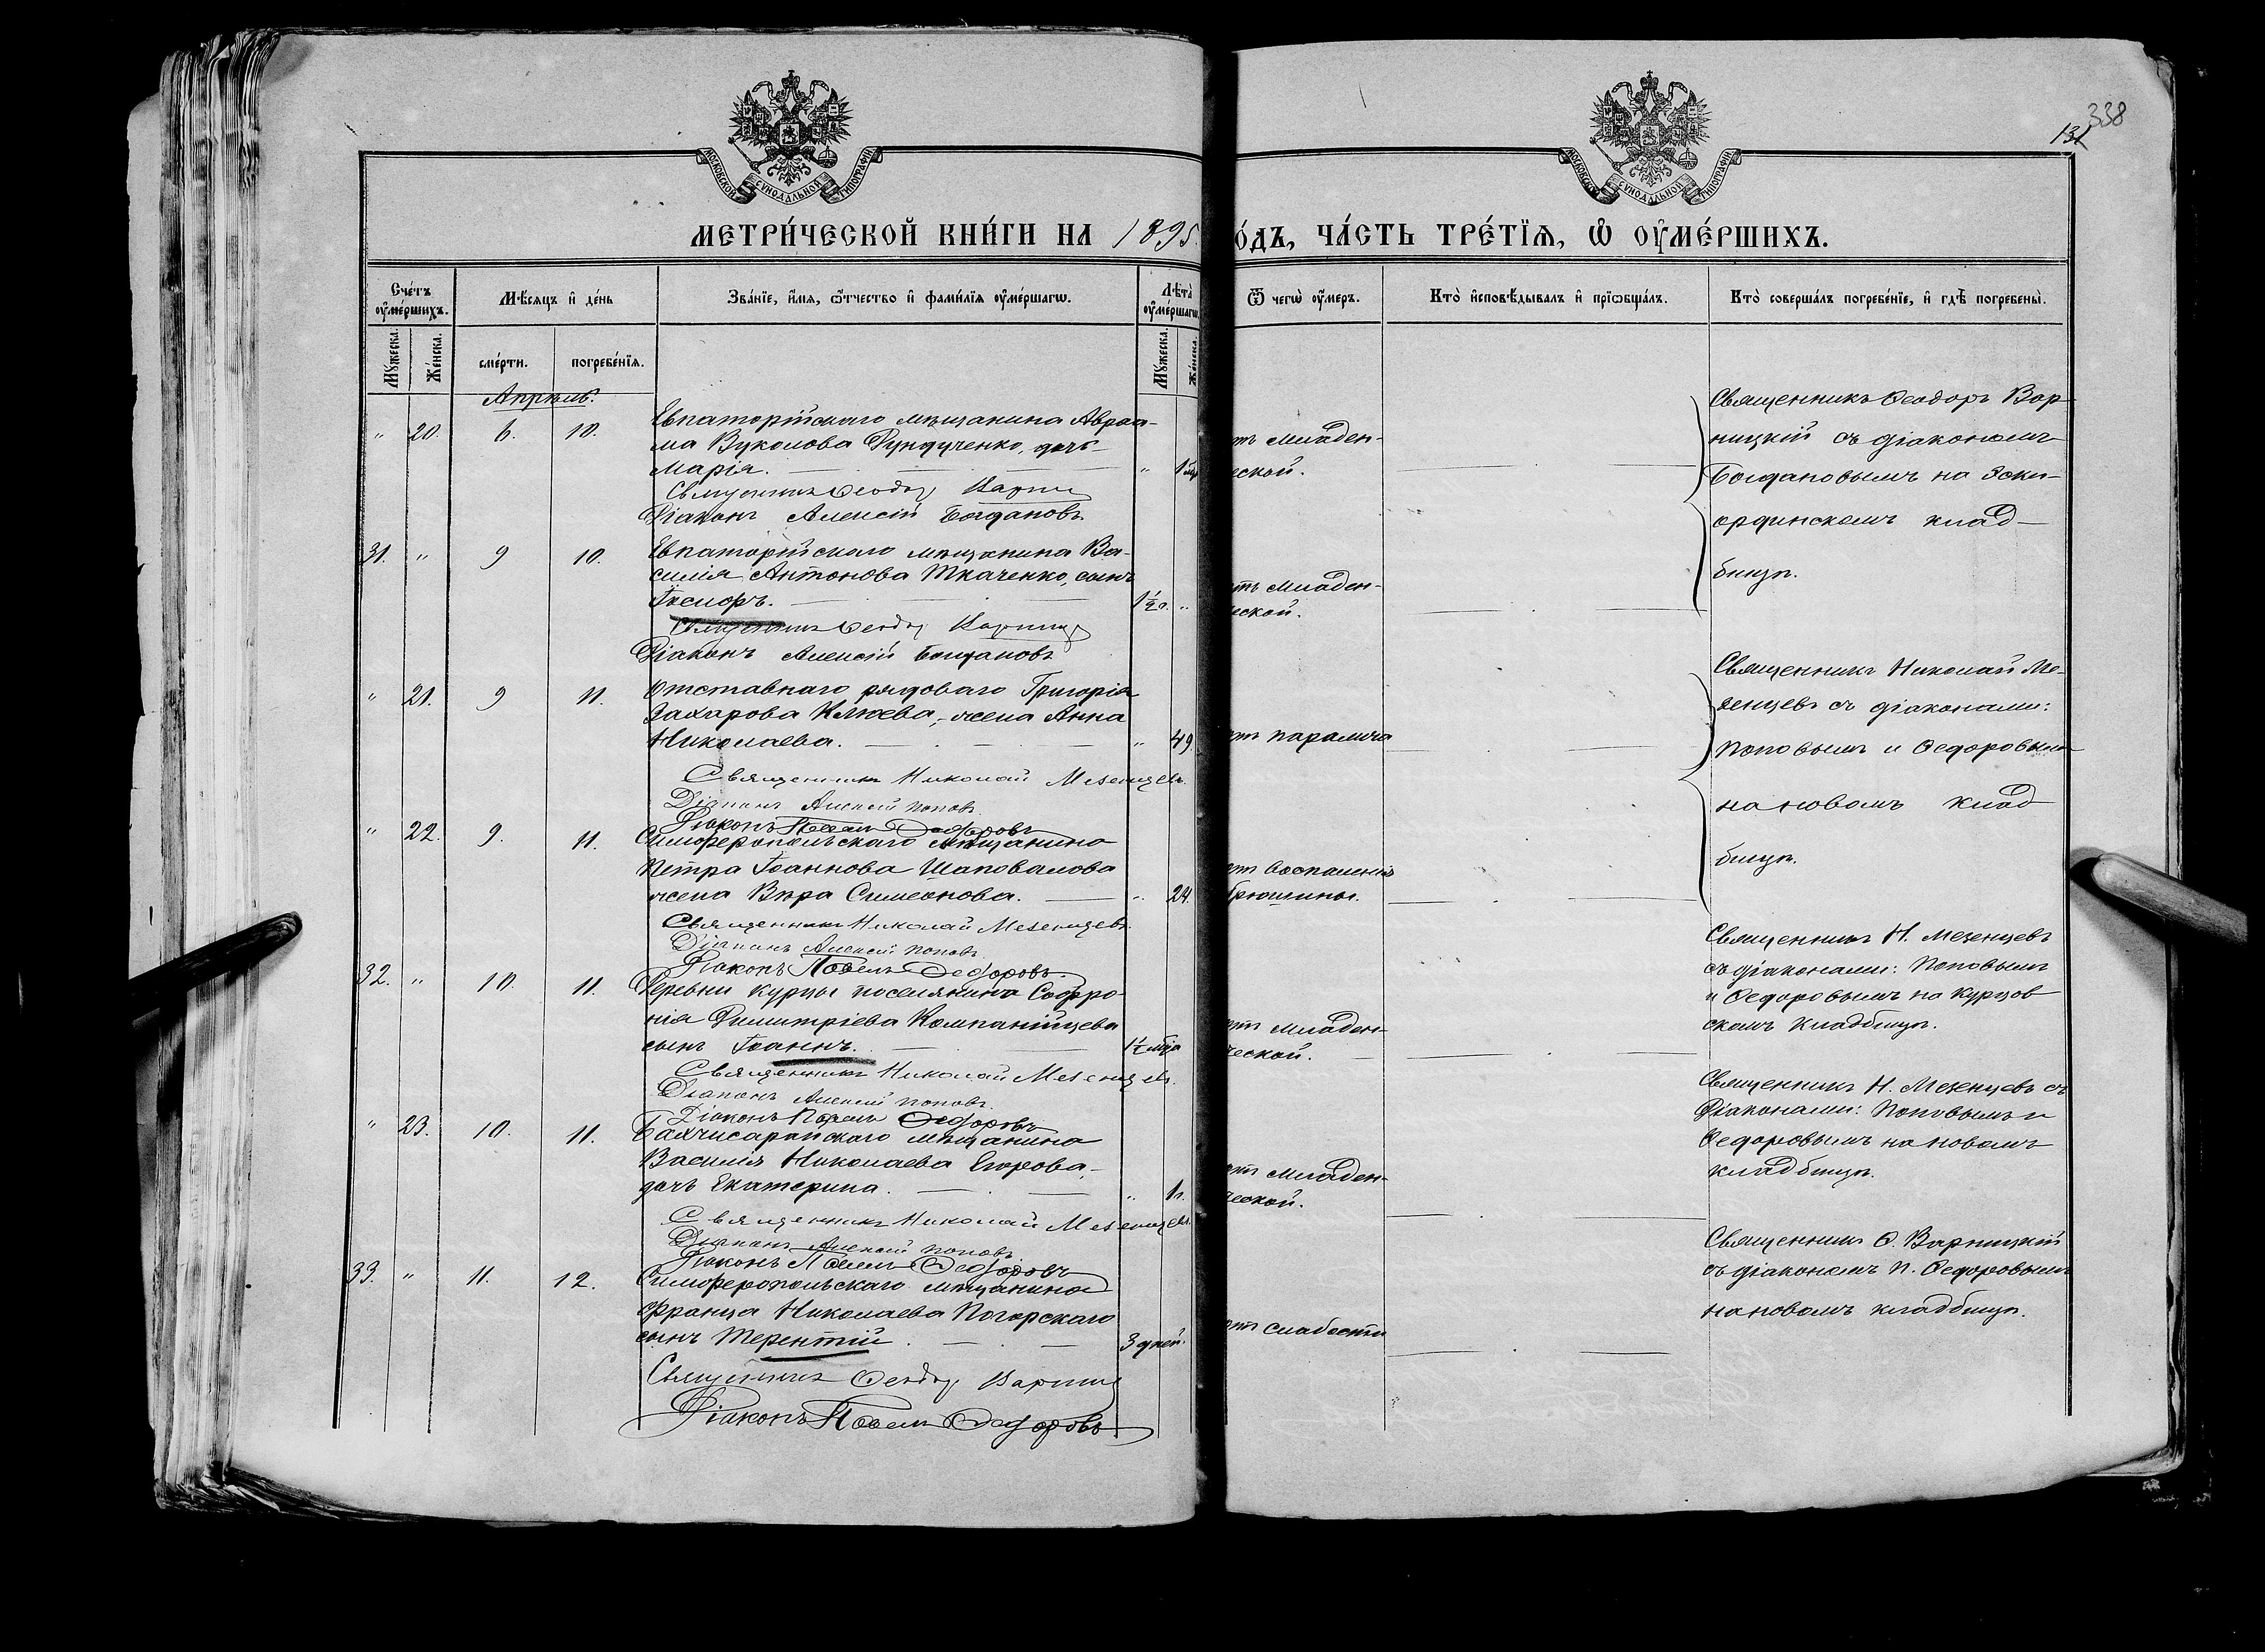 338
131
МОСКОВСКОЙ СѴНОДАЛЬНОЙ ТИПОГРАФІИ
МОСКОВСКОЙ СѴНОДАЛЬНОЙ ТИПОГРАФІИ
МЕТРИ́ЧЕСКОЙ КНИ́ГИ НА 1895
О́ДЪ, ЧА́СТЬ ТРЕ́ТЇѦ, Ѡ҆ ОУ҆МЕ́РШИХЪ.
Сче́тъ оу҆ме́ршихъ.
Мѣ́сяцъ и҆ де́нь
Зва́нїе, и҆́мя, ѻ҆́тчество и҆ фами́лїя оу҆ме́ршагѡ.
Лѣта̀ оу҆ме́ршагѡ
Ѿ чегѡ̀ оу҆́меръ.
Кто̀ и҆сповѣ́дывалъ и҆ прїѡбща́лъ.
Кто̀ соверша́лъ погребе́нїе, и҆ гдѣ̀ погребены̀.
Мꙋ́жеска.
Же́нска.
сме́рти.
погребе́нїя.
Мꙋ́жеска.
Же́нска.
Апрѣль.
" 20. 6. 10. Евпаторійскаго мѣщанина Авраа-
ма Вуколова Дундученко, дочь
Марія. "
Священникъ Ѳеодоръ Варниц
Діаконъ Алексій Богдановъ
тъ младен-
еской.
Священникъ Ѳеодоръ Вар-
ницкій съ діакономъ
Богдановымъ на Эски-
ординскомъ клад-
бищѣ.
31. " 9 10. Евпаторійскаго мѣщанина Ва-
силія Антонова Ткаченко, сынъ
Исидоръ. 1½ г. "
Священникъ Ѳеодоръ Варниц
Діаконъ Алексій Богдановъ
тъ младен-
еской.
" 21. 9 11. Отставнаго рядоваго Григорія
Захарова Клюева,- жена Анна
Николаева. " 49.
Священникъ Николай Мезенцевъ.
Діаконъ Алексій Поповъ
Діаконъ Павелъ Ѳедоровъ
тъ паралича
Священникъ Николай Ме-
зенцевъ съ діаконами:
Поповымъ и Ѳедоровымъ
на новомъ клад
бищѣ.
" 22. 9. 11. Симферопольскаго мѣщанина
Петра Іоаннова Шаповалова
жена Вѣра Симеонова. " 24.
Священникъ Николай Мезенцевъ.
Діаконъ Алексій Поповъ
Діаконъ Павелъ Ѳедоровъ.
тъ воспаленія
брюшины.
32. " 10. 11. Деревни Курцы поселянина Софро-
нія Димитріева Компанійцева
сынъ Іоаннъ. 1½ мѣся
Священникъ Николай Мезенцевъ.
Діаконъ Алексій Поповъ.
Діаконъ Павелъ Ѳедоровъ
тъ младен-
ческой.
Священникъ Н. Мезенцевъ
съ діаконами: Поповымъ
и Ѳедоровымъ на Курцов
скомъ кладбищѣ.
" 23. 10. 11. Бахчисарайскаго мѣщанина
Василія Николаева Егорова,-
дочь Екатерина. " 1 г.
Священникъ Николай Мезенцевъ.
Діаконъ Алексій Поповъ
Діаконъ Павелъ Ѳедоровъ
тъ младен-
ческой.
Священникъ Н. Мезенцевъ съ
діаконами: Поповымъ и
Ѳедоровымъ на новомъ
кладбищѣ.
33. " 11. 12. Симферопольскаго мѣщанина
Франца Николаева Погорскаго
сынъ Терентій. 3 дней.
Священникъ Ѳеодоръ Варниц
Діаконъ Павелъ Ѳедоровъ
отъ слабости
Священникъ Ѳ. Варницкій
съ діакономъ П. Ѳедоровымъ
на новомъ кладбищѣ.